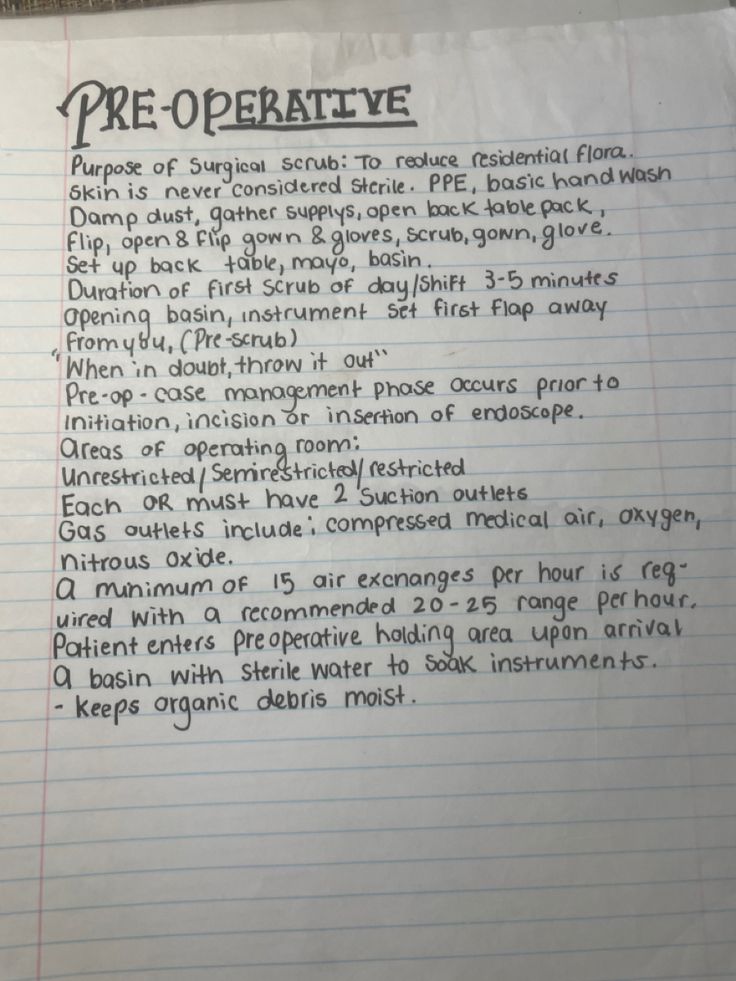 PRE-OPERATIVE
Purpose of Surgical scrub: To reduce residential flora.
Skin is never considered sterile. PPE, basic hand wash
Damp dust, gather supplys, open back table pack,
flip, open & flip gown & gloves, scrub, gown, glove.
Set up back table, mayo, basin.
Duration of first scrub of day/shift 3-5 minutes
opening basin, instrument set first flap away
from you, (Pre-scrub)
"When in doubt, throw it out"
Pre-op - case management phase occurs prior to
initiation, incision or insertion of endoscope.
Areas of operating room:
Unrestricted/Semirestricted/restricted
Each OR must have 2 suction outlets
Gas outlets include: compressed medical air, oxygen,
nitrous oxide.
A minimum of 15 air exchanges per hour is req-
uired with a recommended 20-25 range per hour.
Patient enters preoperative holding area upon arrival
A basin with sterile water to soak instruments.
- keeps organic debris moist.